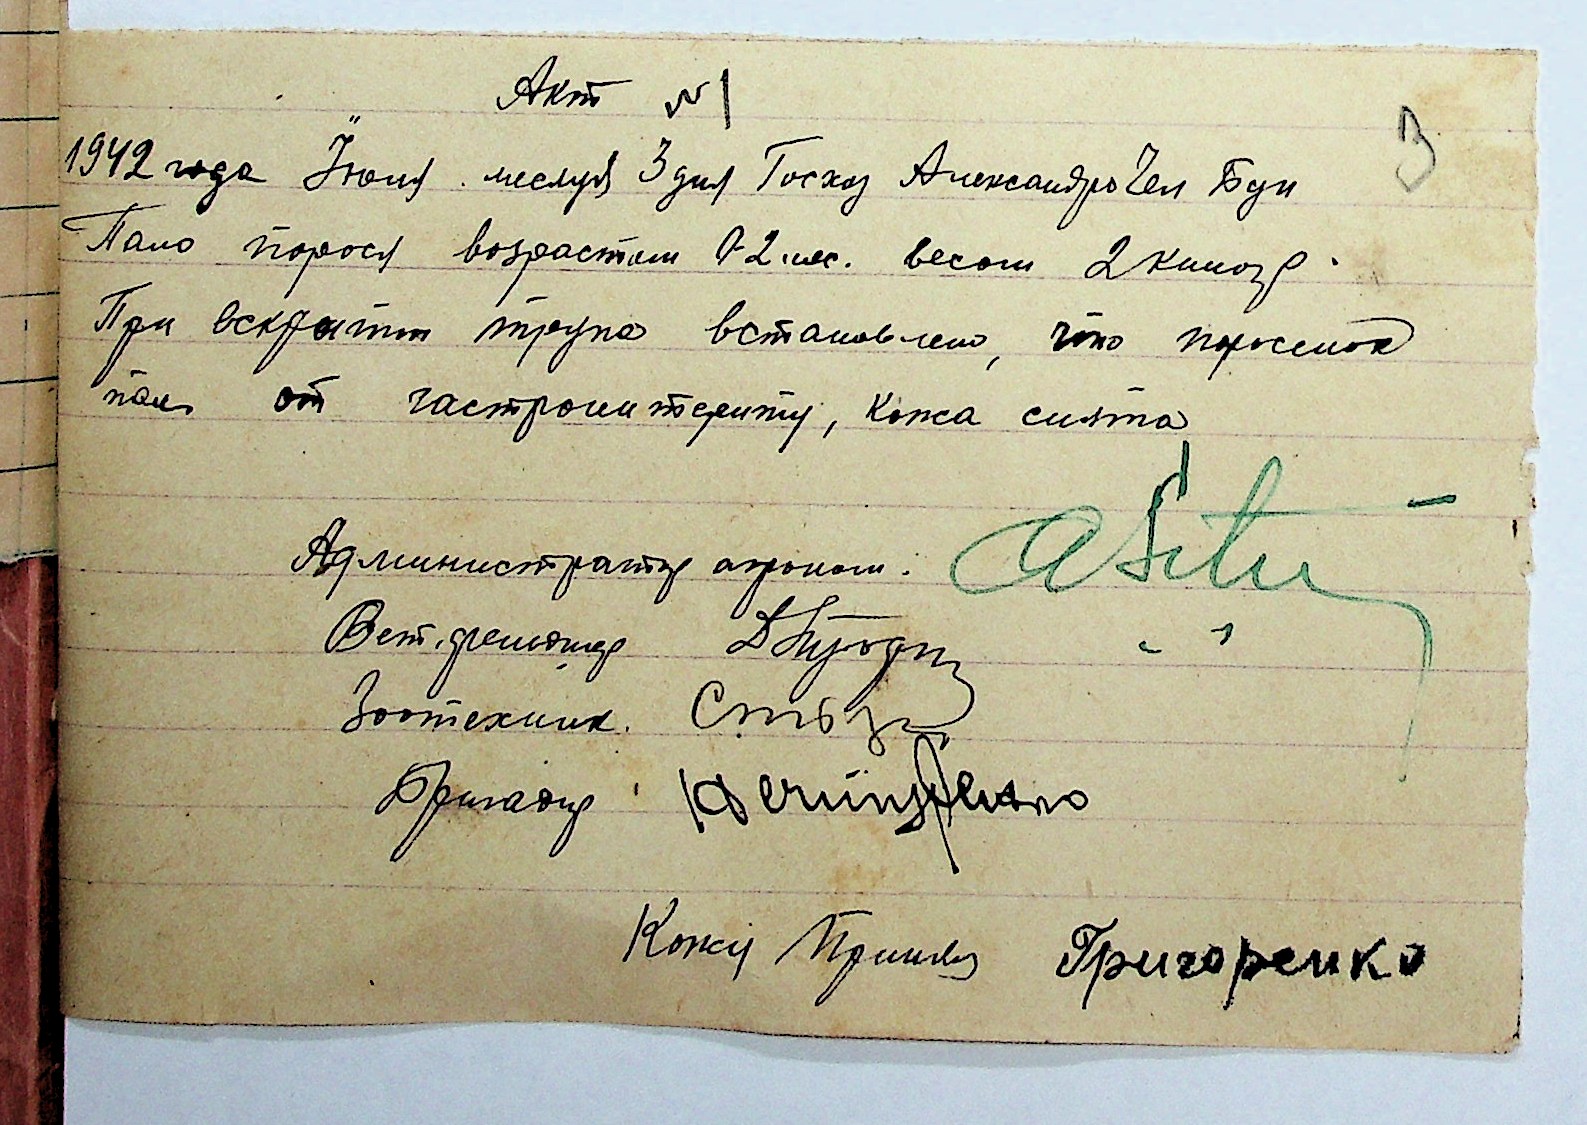 Акт №1
3
1942 года Июля месяця 3 дня Госхоз Александро Чел Бук
Пало порося возрастом 1-2 мес. весом 2 килогр.
При вскрытии трупа встановлено, что поросенок
пал от гастроинтериту, кожа снята
Администратор агроном.
Вет. фельдшер
Зоотехник.
Бригадир
Кожу Принял Григоренко